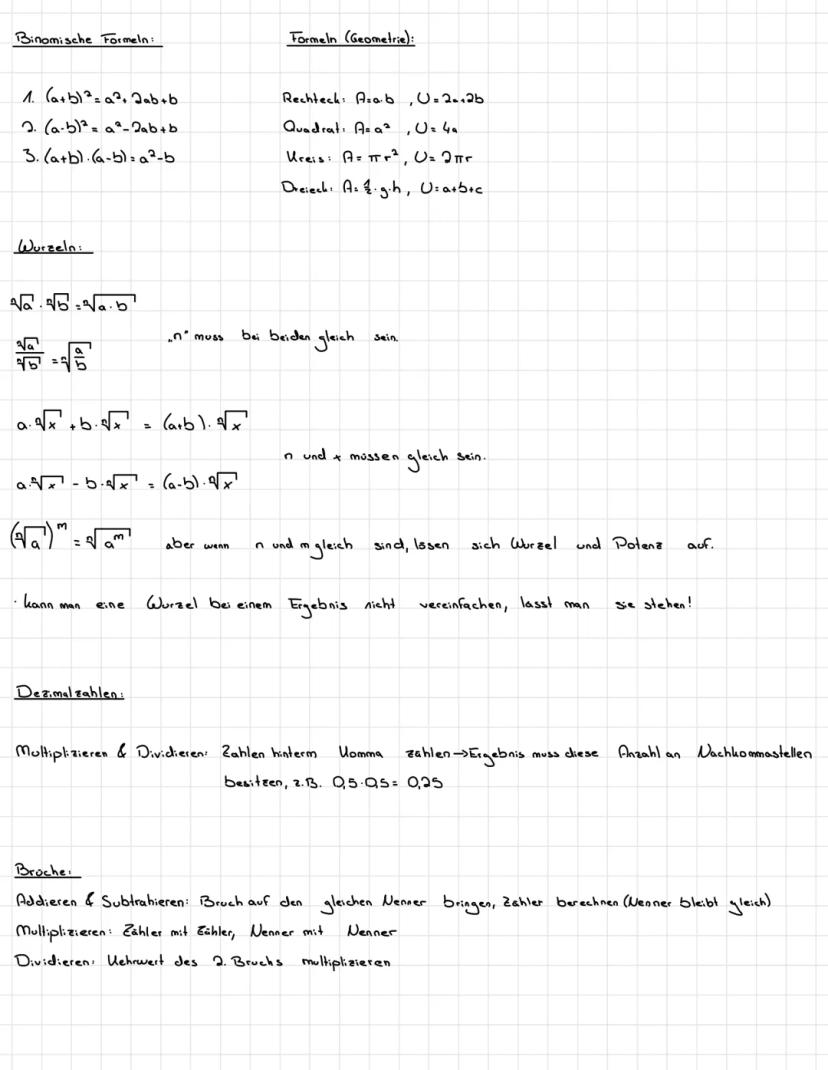 Binomische Formeln:
Formeln (Geometrie):
1. (a+b)² = a² + 2ab+b
2. (a-b)² = a² - 2ab+b
3. (a+b)·(a-b) = a²-b
Rechteck: A=a·b , U=2a+2b
Quadrat: A=a² , U=4a
Kreis: A=πr² , U=2πr
Dreieck: A=½·g·h, U=a+b+c
Wurzeln:
ⁿ√a · ⁿ√b = ⁿ√(a·b)
ⁿ√a / ⁿ√b = ⁿ√(a/b)
„n" muss bei beiden gleich sein.
a·ⁿ√x + b·ⁿ√x = (a+b)·ⁿ√x
n und x müssen gleich sein.
a·ⁿ√x - b·ⁿ√x = (a-b)·ⁿ√x
(ⁿ√a)ᵐ = ⁿ√aᵐ aber wenn n und m gleich sind, lösen sich Wurzel und Potenz auf.
· kann man eine Wurzel bei einem Ergebnis nicht vereinfachen, lässt man sie stehen!
Dezimalzahlen:
Multiplizieren & Dividieren: Zahlen hinterm Komma zählen → Ergebnis muss diese Anzahl an Nachkommastellen
besitzen, z.B. 0,5·0,5 = 0,25
Brüche:
Addieren & Subtrahieren: Bruch auf den gleichen Nenner bringen, Zähler berechnen (Nenner bleibt gleich)
Multiplizieren: Zähler mit Zähler, Nenner mit Nenner
Dividieren: Kehrwert des 2. Bruchs multiplizieren